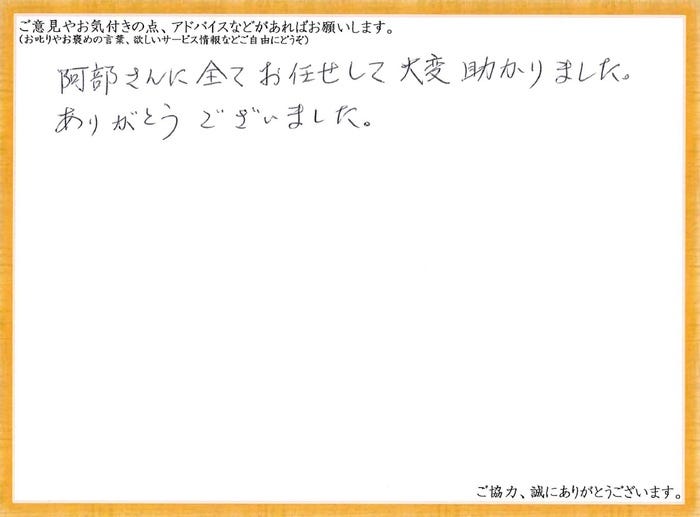 ご意見やお気付きの点、アドバイスなどがあればお願いします。
(お叱りやお褒めの言葉、欲しいサービス情報などご自由にどうぞ)
阿部さんに全てお任せして大変助かりました。
ありがとうございました。
ご協力、誠にありがとうございます。